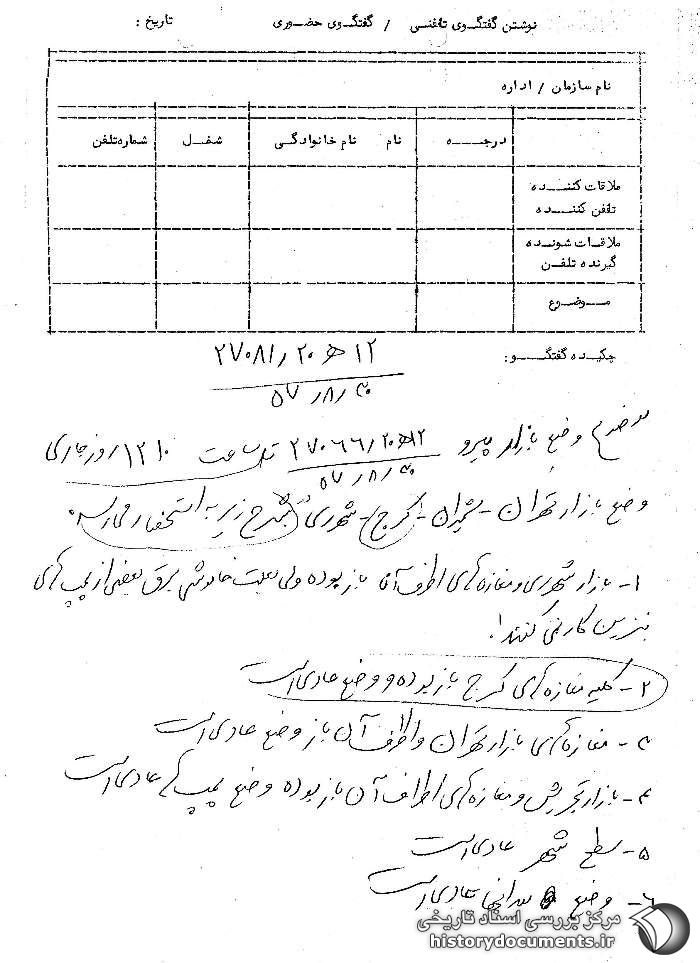 نوشتن گفتگوی تلفنی / گفتگوی حضوری تاریخ :
نام سازمان / اداره
درجه نام نام خانوادگی شغل شماره‌تلفن
ملاقات کننده
تلفن کننده
ملاقات شونده
گیرنده تلفن
موضوع
چکیده گفتگو:
۲۷۰۸۱/۲۰ ه‍ ۱۲
۵۷/۸/۳۰
موضوع وضع بازار پیرو ۲۷۰۶۶/۲۰ه‍۱۲ تا ساعت ۱۲۱۰ روز جاری
۵۷/۸/۳۰
وضع بازار تهران - شمیران - کرج - شهرری بشرح زیر به استحضار میرسد.
۱- بازار شهرری و مغازه‌های اطراف آن باز بوده ولی بعلت خاموشی برق بعضی از پمپ‌های
بنزین کار نمی کنند.
۲- کلیه مغازه‌های کرج باز بوده و وضع عادی است
۳- مغازه‌های بازار تهران و اطراف آن باز وضع عادی است
۴- بازار تجریش و مغازه‌های اطراف آن باز بوده وضع پمپ ها عادی است
۵- سطح شهر عادی است
۶- وضع عادی است
مرکز بررسی اسناد تاریخی
historydocuments.ir